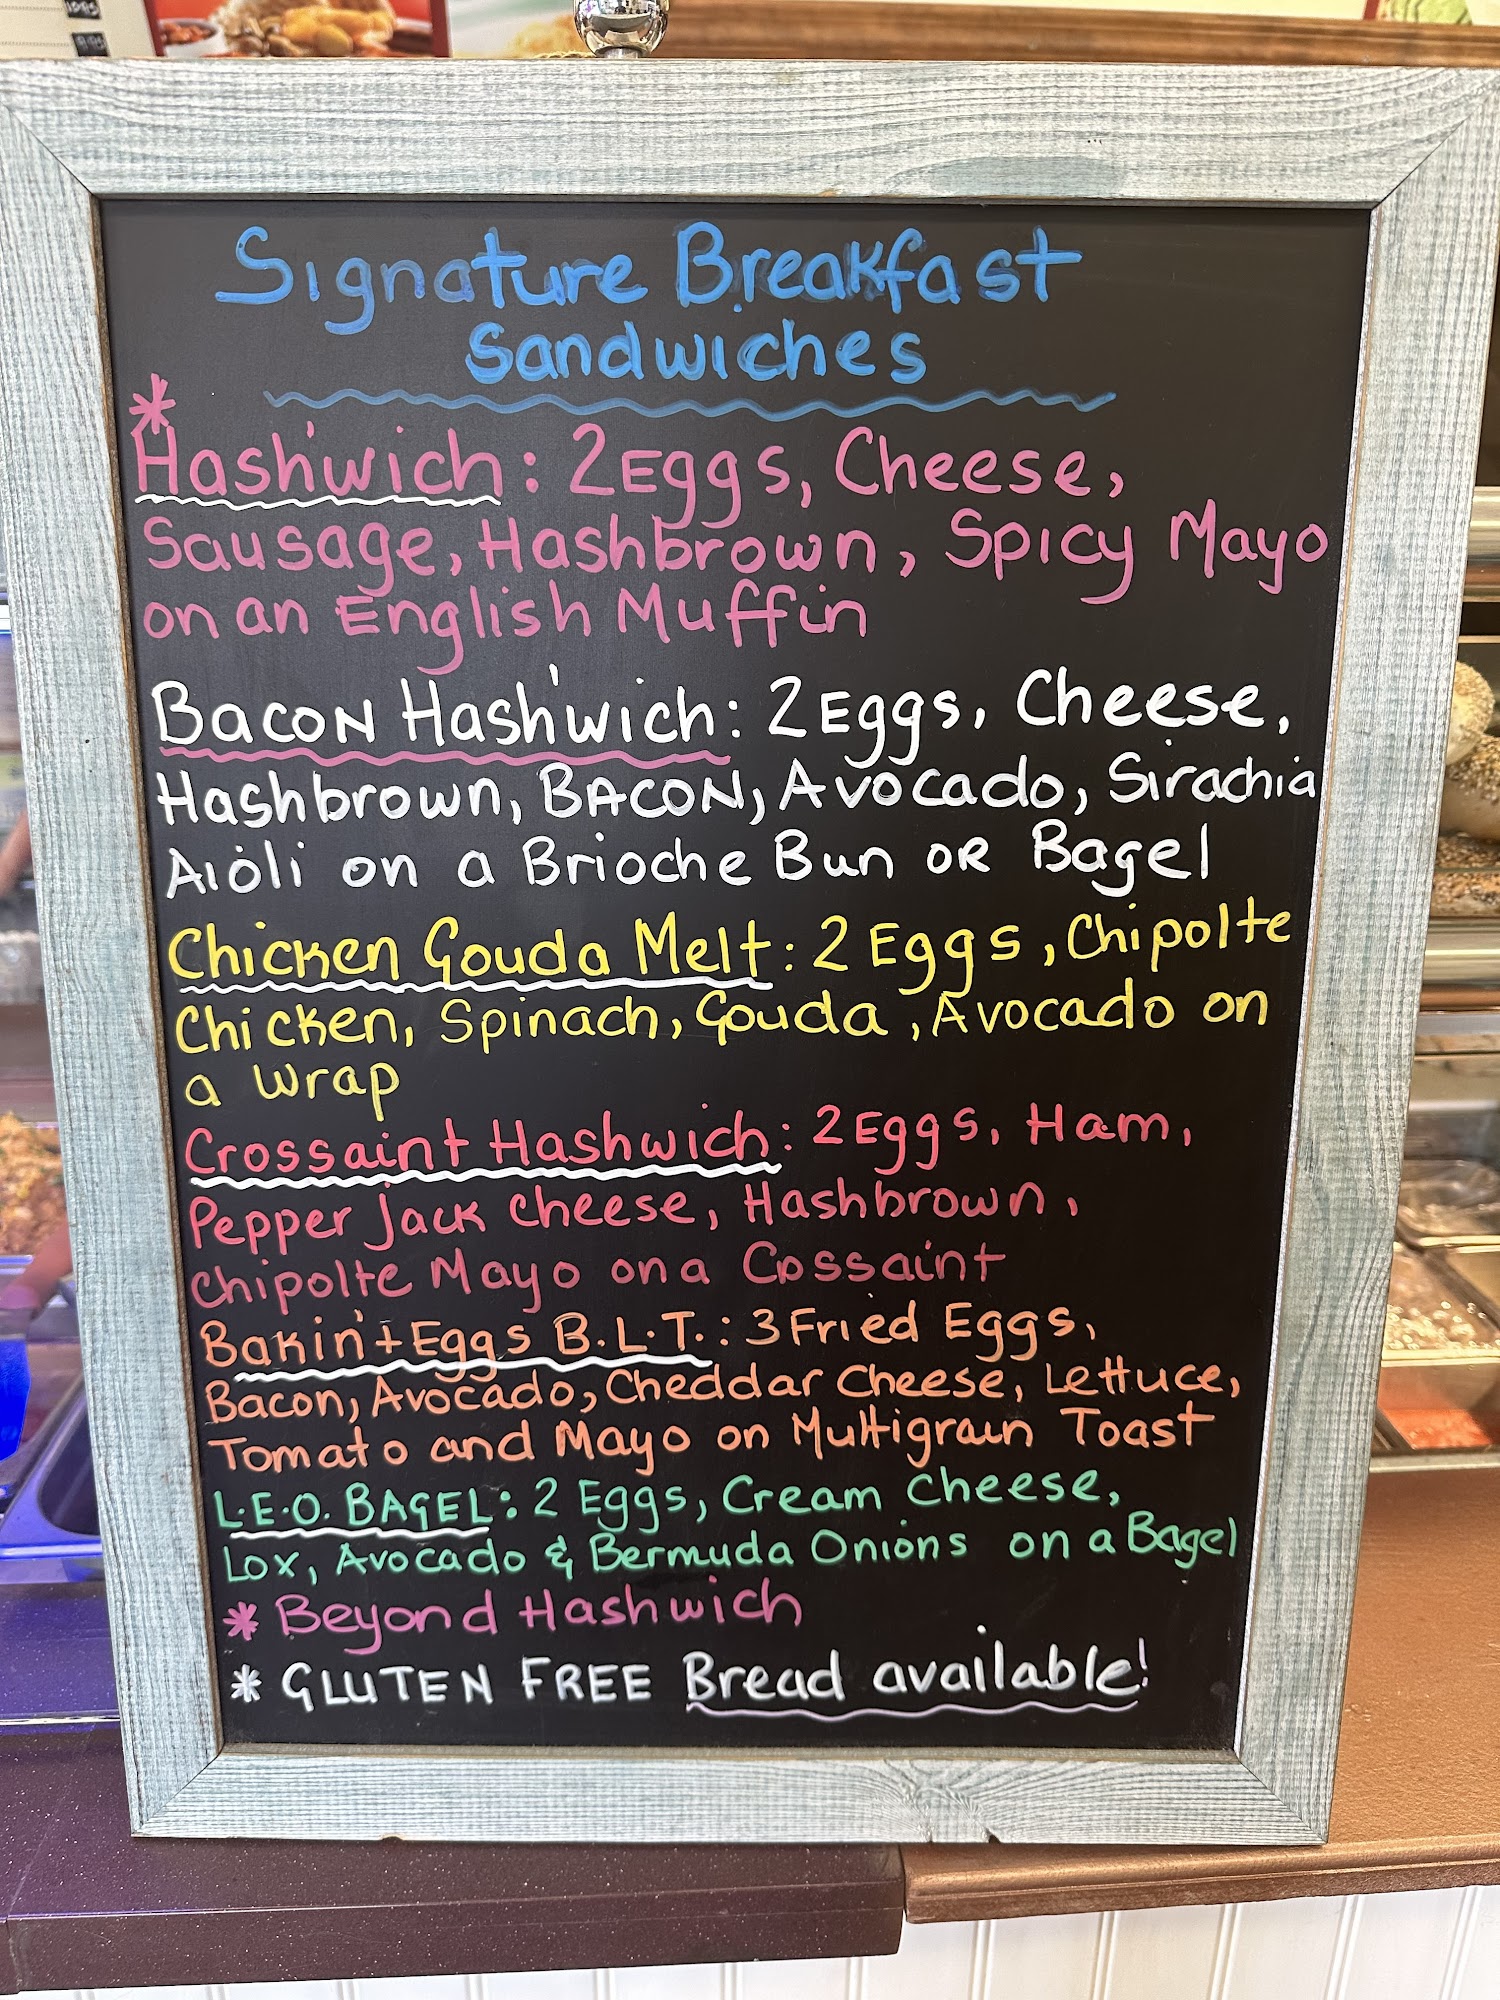 Signature Breakfast
Sandwiches
*
Hash'wich: 2 Eggs, Cheese,
Sausage, Hashbrown, Spicy Mayo
on an English Muffin
Bacon Hash'wich: 2 Eggs, Cheese,
Hashbrown, BACON, Avocado, Sirachia
Aioli on a Brioche Bun OR Bagel
Chicken Gouda Melt: 2 Eggs, Chipolte
Chicken, Spinach, Gouda, Avocado on
a wrap
Crossaint Hashwich: 2 Eggs, Ham,
Pepper Jack cheese, Hashbrown,
Chipolte Mayo on a Cossaint
Bakin' + Eggs B.L.T.: 3 Fried Eggs,
Bacon, Avocado, Cheddar Cheese, Lettuce,
Tomato and Mayo on Multigrain Toast
L.E.O. BAGEL: 2 Eggs, Cream Cheese,
Lox, Avocado & Bermuda Onions on a Bagel
* Beyond Hashwich
* GLUTEN FREE Bread available!